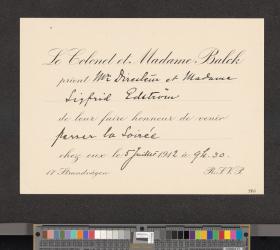 Le Colonel et Madame Balck
prient Mr Directeur et Madame
Sigfrid Edström
de leur faire honneur de venir
passer la Soirée
chez eux le 5 Juillet 1912 à 9 h. 30.
17 Strandvägen R.S.V.P.